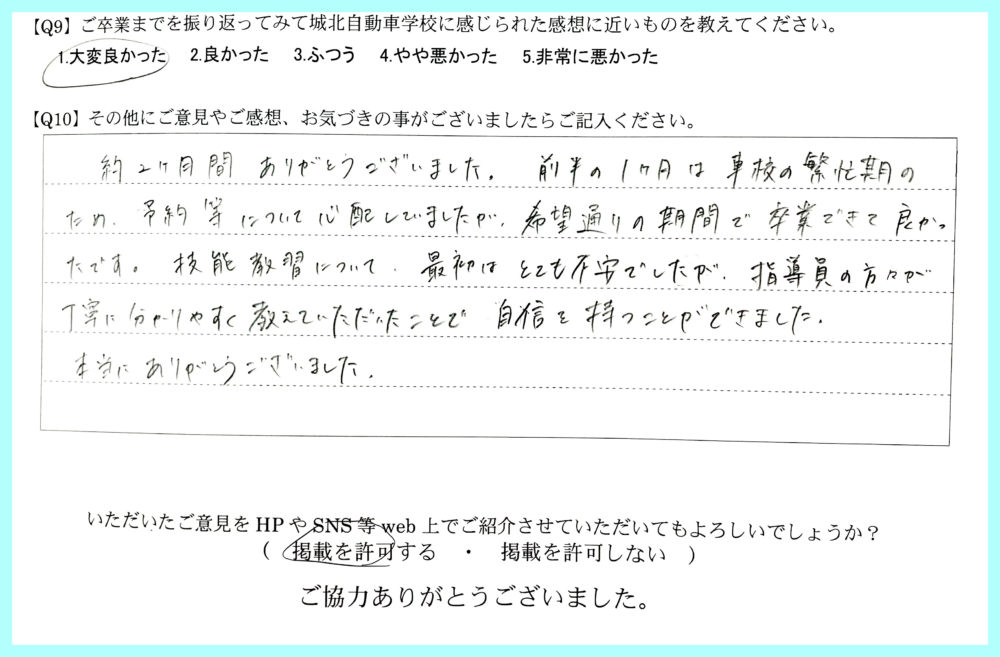 【Q9】ご卒業までを振り返ってみて城北自動車学校に感じられた感想に近いものを教えてください。
1.大変良かった 2.良かった 3.ふつう 4.やや悪かった 5.非常に悪かった
【Q10】その他にご意見やご感想、お気づきの事がございましたらご記入ください。
約2ヶ月間 ありがとうございました。 前半の1ヶ月は車校の繁忙期の
ため、予約等について心配していましたが、希望通りの期間で卒業できて良かっ
たです。技能教習について、最初はとても不安でしたが、指導員の方々が
丁寧に分かりやすく教えていただいたことで 自信を持つことができました。
本当にありがとうございました。
いただいたご意見をHPやSNS等web上でご紹介させていただいてもよろしいでしょうか？
( 掲載を許可する ・ 掲載を許可しない )
ご協力ありがとうございました。